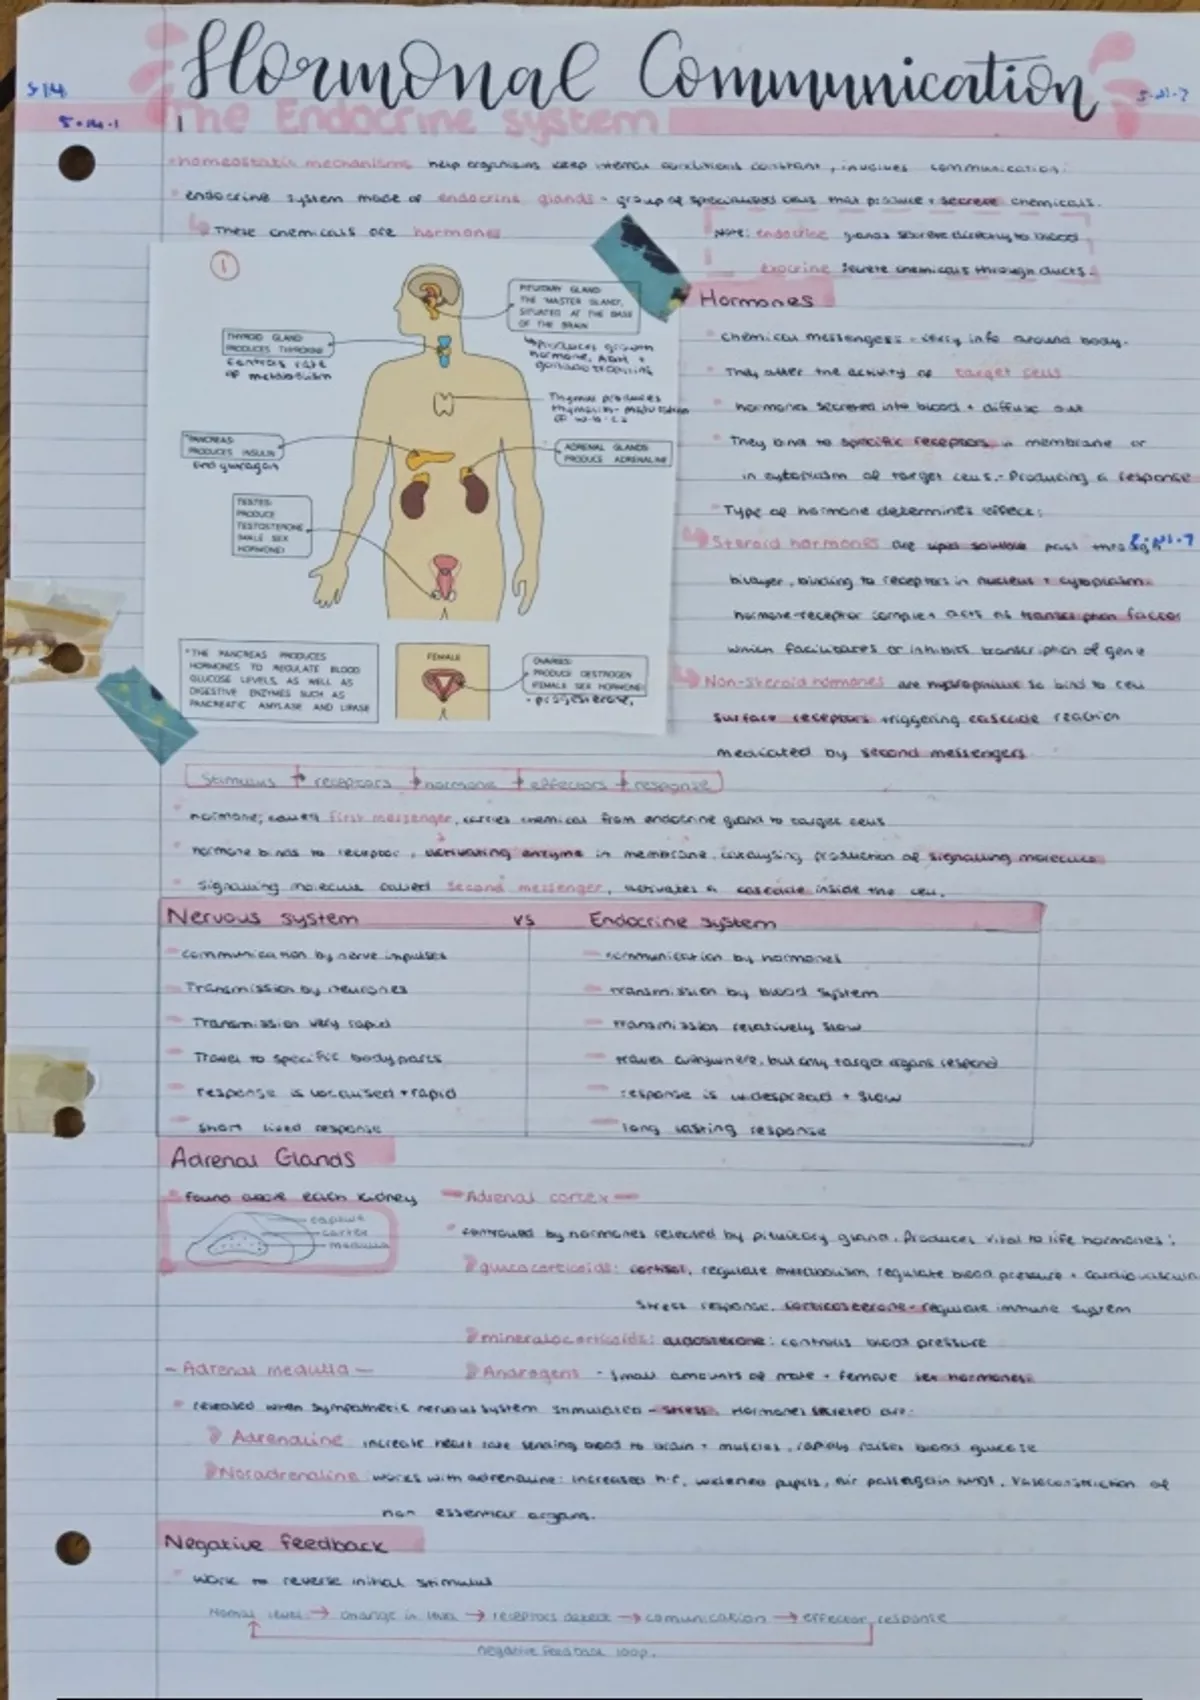 Hormonal Communication
5.1.4
5.14.1
The Endocrine system
homeostatic mechanisms help organisms keep internal conditions constant, involves communication:
endocrine system made of endocrine glands - group of specialised cells that produce + secrete chemicals.
These chemicals are hormones
Note: endocrine glands secrete directly to blood
exocrine secrete chemicals through ducts.
1
PITUITARY GLAND:
THE "MASTER GLAND",
SITUATED AT THE BASE
OF THE BRAIN
produces growth
hormone, ADH +
THYROID GLAND
PRODUCES THYROXINE
controls rate
of metabolism
Thymus produces
thymosin - maturation
of w.b.cs
*PANCREAS:
PRODUCES INSULIN
and glucagon
ADRENAL GLANDS:
PRODUCE ADRENALINE
TESTES:
PRODUCE
TESTOSTERONE
(MALE SEX
HORMONE)
*THE PANCREAS PRODUCES
HORMONES TO REGULATE BLOOD
GLUCOSE LEVELS, AS WELL AS
DIGESTIVE ENZYMES SUCH AS
PANCREATIC AMYLASE AND LIPASE
FEMALE
OVARIES:
PRODUCE OESTROGEN
FEMALE SEX HORMONE
- progesterone,
Hormones
chemical messengers - carry info around body.
They alter the activity of target cells
hormones secreted into blood + diffuse out
They bind to specific receptors in membrane or
in cytoplasm of target cells. - Producing a response
Type of hormone determines effect:
Steroid hormones are lipid soluble pass through
bilayer, binding to receptors in nucleus + cytoplasm.
hormone-receptor complex acts as transcription factor
which facilitates or inhibits transcription of gene
Non-steroid hormones are hydrophilic so bind to cell
surface receptors triggering cascade reaction
mediated by second messengers
Stimulus → receptors → hormone → effectors → response
hormone; called first messenger, carries chemical from endocrine gland to target cells
hormone binds to receptor, activating enzyme in membrane, catalysing production of signalling molecule
signalling molecule called second messenger, activates a cascade inside the cell.
Nervous system vs Endocrine system
communication by nerve impulses
communication by hormones
Transmission by neurones
transmission by blood system
Transmission very rapid
transmission relatively slow
Travel to specific body parts
travel everywhere, but only target organs respond
response is localised + rapid
response is widespread + slow
short lived response
long lasting response
Adrenal Glands
found above each kidney
capsule
cortex
medulla
Adrenal cortex
controlled by hormones released by pituitary gland. Produces vital to life hormones:
glucocorticoids: cortisol, regulate metabolism, regulate blood pressure + cardiovascular
stress response. corticosterone - regulate immune system
mineralocorticoids: aldosterone: controls blood pressure
Androgens - small amounts of male + female sex hormones.
- Adrenal medulla -
released when sympathetic nervous system stimulated - stress. Hormones secreted are:
Adrenaline increase heart rate sending blood to brain + muscles, rapidly raises blood glucose
Noradrenaline works with adrenaline: increased h.r, widened pupils, air passages in lungs, vasoconstriction of
non essential organs.
Negative feedback
work to reverse initial stimulus
Normal level → change in level → receptors detect → comunication → effector response
negative feedback loop.